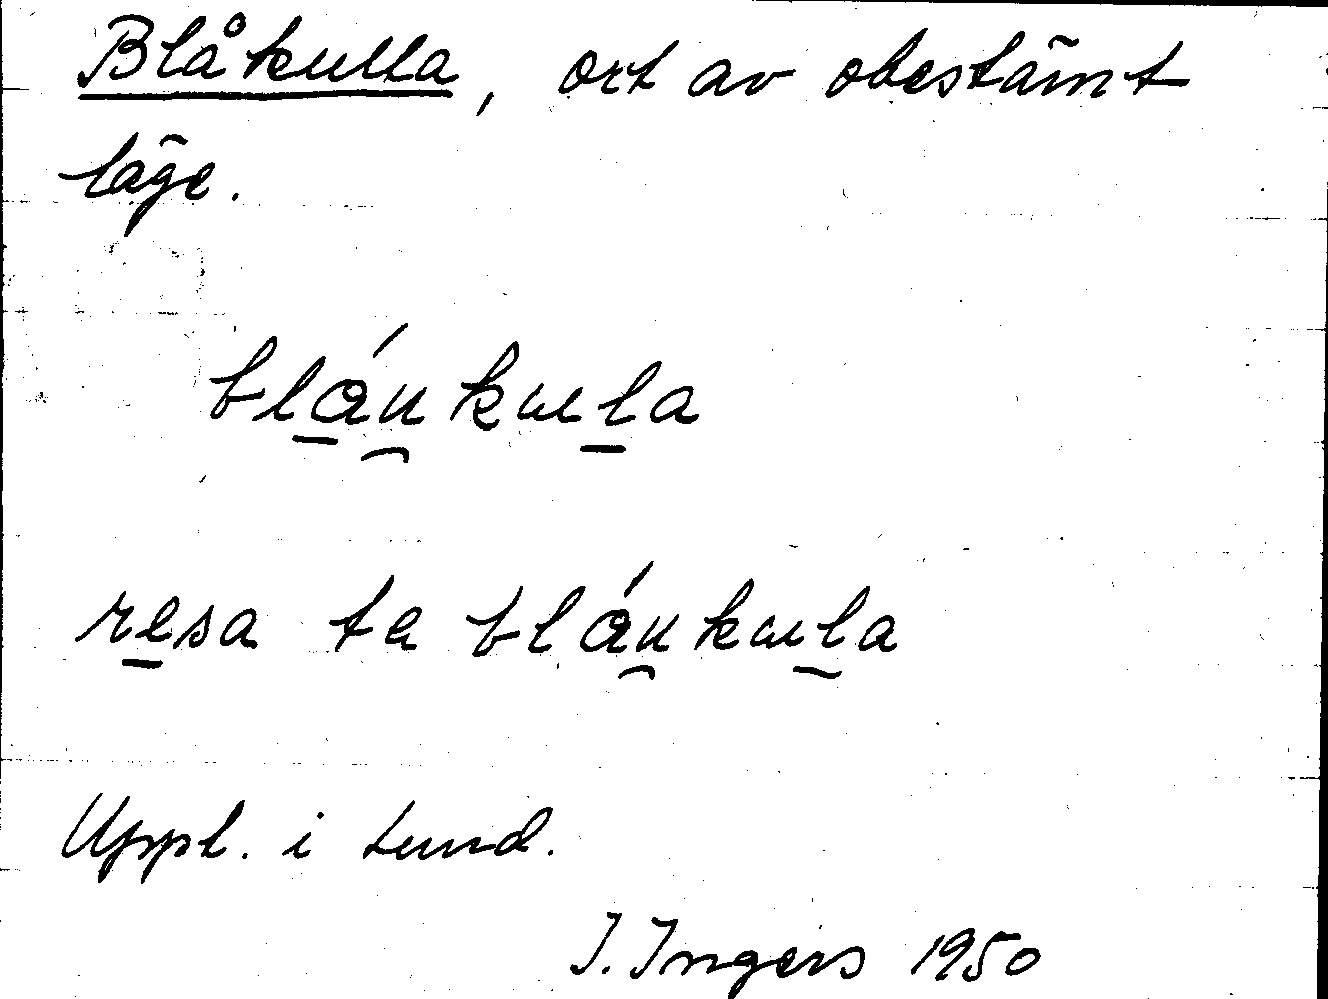 Blåkulla, ort av obestämt
läge.
bláu̯kula
resa te bláu̯kula
Uppl. i Lund.
I. Ingers 1950